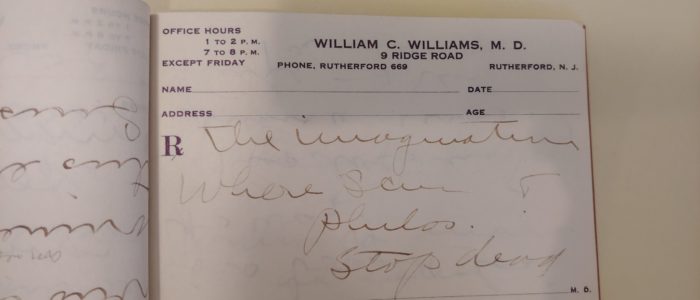 OFFICE HOURS
1 TO 2 P. M.
7 TO 8 P. M.
EXCEPT FRIDAY
WILLIAM C. WILLIAMS, M. D.
9 RIDGE ROAD
PHONE, RUTHERFORD 669 RUTHERFORD, N. J.
NAME DATE
ADDRESS AGE
℞ The imagination
Where
philos.
Stop dead
M. D.